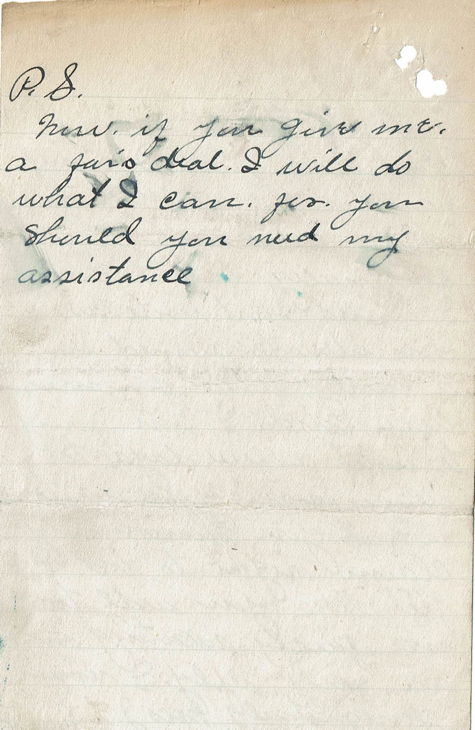 P.S.
Now. if you give me.
a fair deal. I will do
what I can. for. you
should you need my
assistance